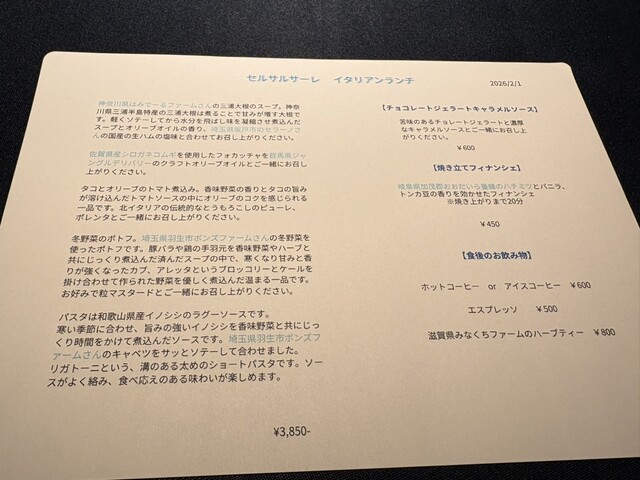 セルサルサーレ　イタリアンランチ
2026/2/1
神奈川県はみでーるファームさんの三浦大根のスープ。神奈
川県三浦半島特産の三浦大根は煮ることで甘みが増す大根で
す。軽くソテーしてから水分を飛ばし味を凝縮させ煮込んだ
スープとオリーブオイルの香り、埼玉県坂戸市のセラーノさ
んの国産の生ハムの塩味と合わせてお召し上がりください。
佐賀県産シロガネコムギを使用したフォカッチャを群馬県ジャ
ングルデリバリーのクラフトオリーブオイルとご一緒にお召し
上がりください。
タコとオリーブのトマト煮込み。香味野菜の香りとタコの旨み
が溶け込んだトマトソースの中にオリーブのコクを感じられる
一品です。北イタリアの伝統的なとうもろこしのピューレ、
ポレンタとご一緒にお召し上がりください。
冬野菜のポトフ。埼玉県羽生市ボンズファームさんの冬野菜を
使ったポトフです。豚バラや鶏の手羽元を香味野菜やハーブと
共にじっくり煮込んだ済んだスープの中で、寒くなり甘みと香
りが強くなったカブ、アレッタというブロッコリーとケールを
掛け合わせて作られた野菜を優しく煮込んだ温まる一品です。
お好みで粒マスタードとご一緒にお召し上がりください。
パスタは和歌山県産イノシシのラグーソースです。
寒い季節に合わせ、旨みの強いイノシシを香味野菜と共にじっ
くり時間をかけて煮込んだソースです。埼玉県羽生市ボンズフ
ァームさんのキャベツをサッとソテーして合わせました。
リガトーニという、溝のある太めのショートパスタです。ソー
スがよく絡み、食べ応えのある味わいが楽しめます。
¥3,850-
【チョコレートジェラートキャラメルソース】
苦味のあるチョコレートジェラートと濃厚
なキャラメルソースとご一緒にお召し上
がりください。
¥600
【焼き立てフィナンシェ】
岐阜県加茂郡おおだいら養蜂のハチミツとバニラ、
トンカ豆の香りを効かせたフィナンシェ
※焼き上がりまで20分
¥450
【食後のお飲み物】
ホットコーヒー　or　アイスコーヒー　¥600
エスプレッソ　　¥500
滋賀県みなくちファームのハーブティー　¥800